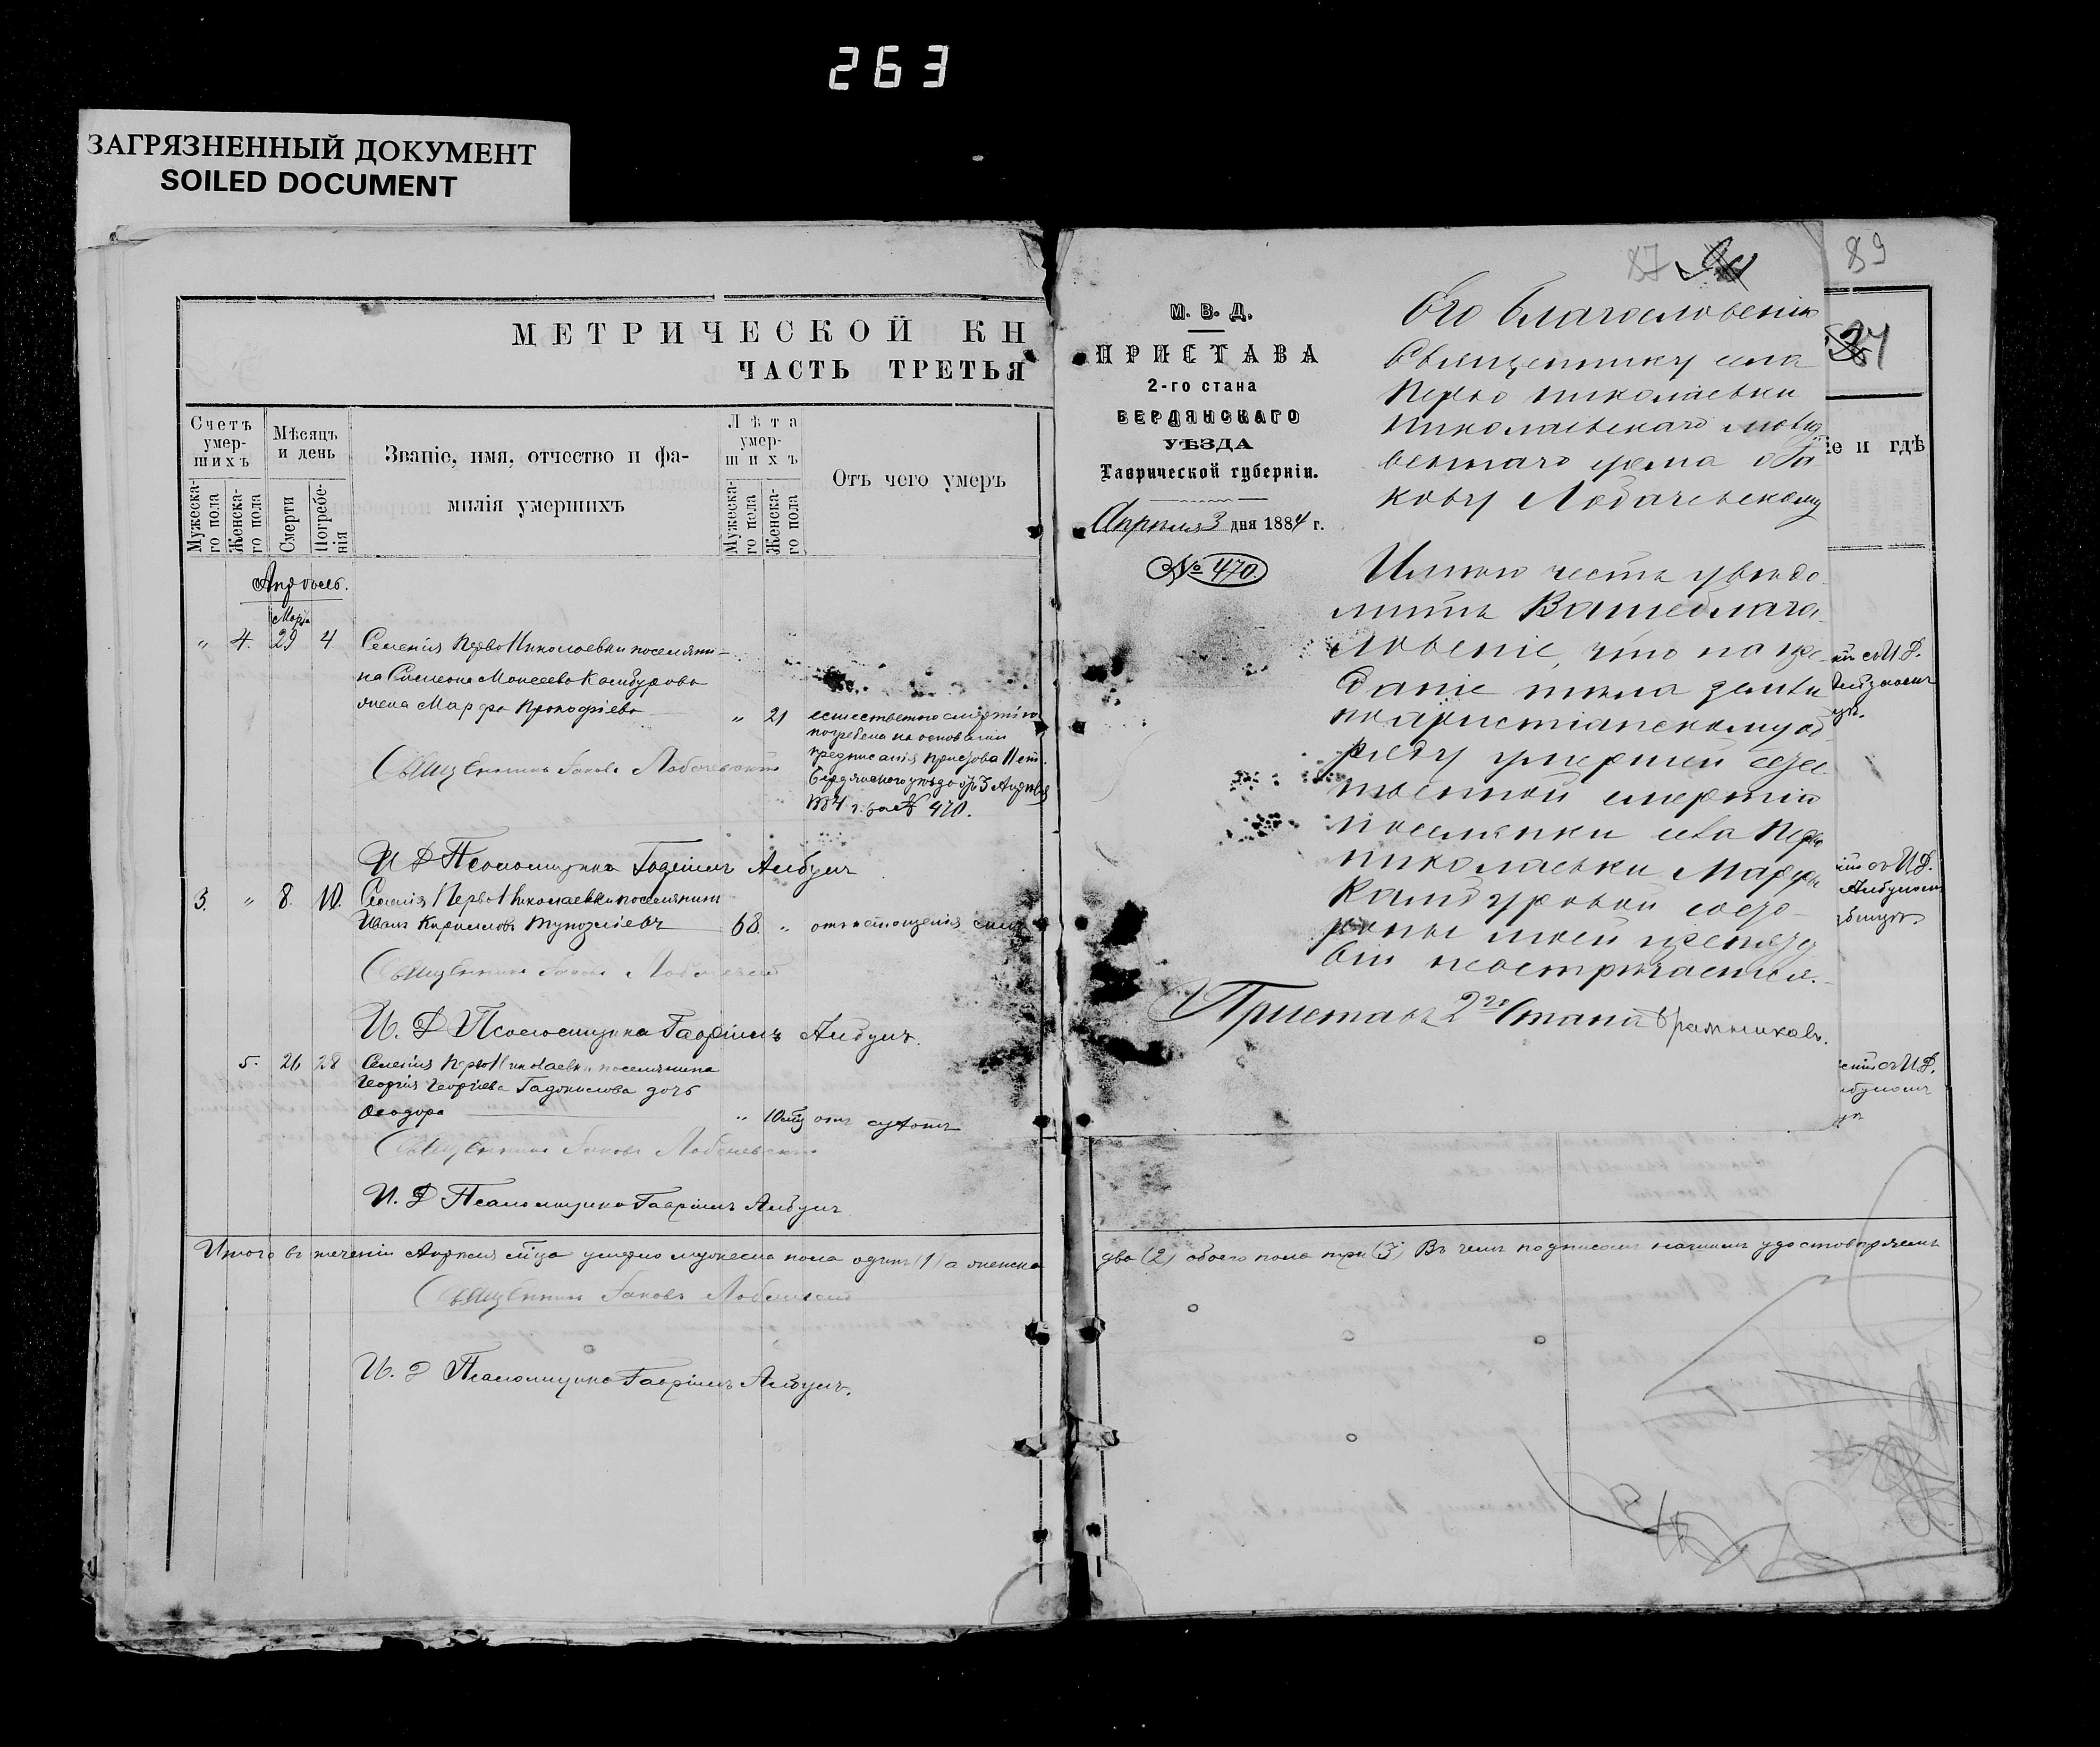 263
ЗАГРЯЗНЕННЫЙ ДОКУМЕНТ
SOILED DOCUMENT
МЕТРИЧЕСКОЙ КН
ЧАСТЬ ТРЕТЬЯ
Счетъ умершихъ
Мѣсяцъ и день
Званіе, имя, отчество и фамилія умершихъ
Лѣта умершихъ
Отъ чего умеръ
Мужеска-го пола
Женска-го пола
Смерти
Погребе-нія
Мужеска-го пола
Женска-го пола
Апрѣль.
Марта
" 4. 29 4 Селенія Перво Николаевки поселяни-
на Симеона Моисеева Камбурова
жена Марфа Прокофіева " 21 естественною смертію
погребена на основаніи
предписанія Пристава II ст.
Бердянскаго уѣзда отъ 3 Апрѣля
1884 г. за № 470.
Священникъ Іаковъ Лобачевскій
И Д Псаломщика Гавріилъ Албулъ
3. " 8. 10. Селенія Перво Николаевки поселянинъ
Иванъ Кирилловъ 68. " отъ истощенія силъ
Священникъ Іаковъ Лобачевскій
И. Д Псаломщика Гавріилъ Албулъ.
5. 26 28 Селенія Перво Николаевки поселянина
Георгія Георгіева дочь
Ѳеодора " 10 отъ сухотъ
Священникъ Іаковъ Лобачевскій
И. Д Псаломщика Гавріилъ Албулъ
Итого въ теченіи Апрѣля м-ца умерло мужеска пола одинъ (1) а женска
два (2) обоего пола три (3) Въ чемъ подписомъ нашимъ удостовѣряемъ
Священникъ Іаковъ Лобачевскій
И. Д Псаломщика Гавріилъ Албулъ.
87
89
М. В. Д.
ПРИСТАВА
2-го стана
БЕРДЯНСКАГО
УѢЗДА
Таврической губерніи.
Апрѣля 3 дня 1884 г.
№ 470.
Его Благословенію
Священнику села
Перво Николаевки
Николаевскаго молит
веннаго дома Іа
кову Лобачевскому
Имѣю честь увѣдо
мить Ваше Благо
словеніе, что на пре
даніе тѣла земли
по христіанскому об
ряду умершей есте
ственной смертію
поселянки села Перво
Николаевки Марфы
Камбуровой со сто
роны моей препятст
вій не встрѣчается.
Приставъ 2го Стана
іе и гдѣ